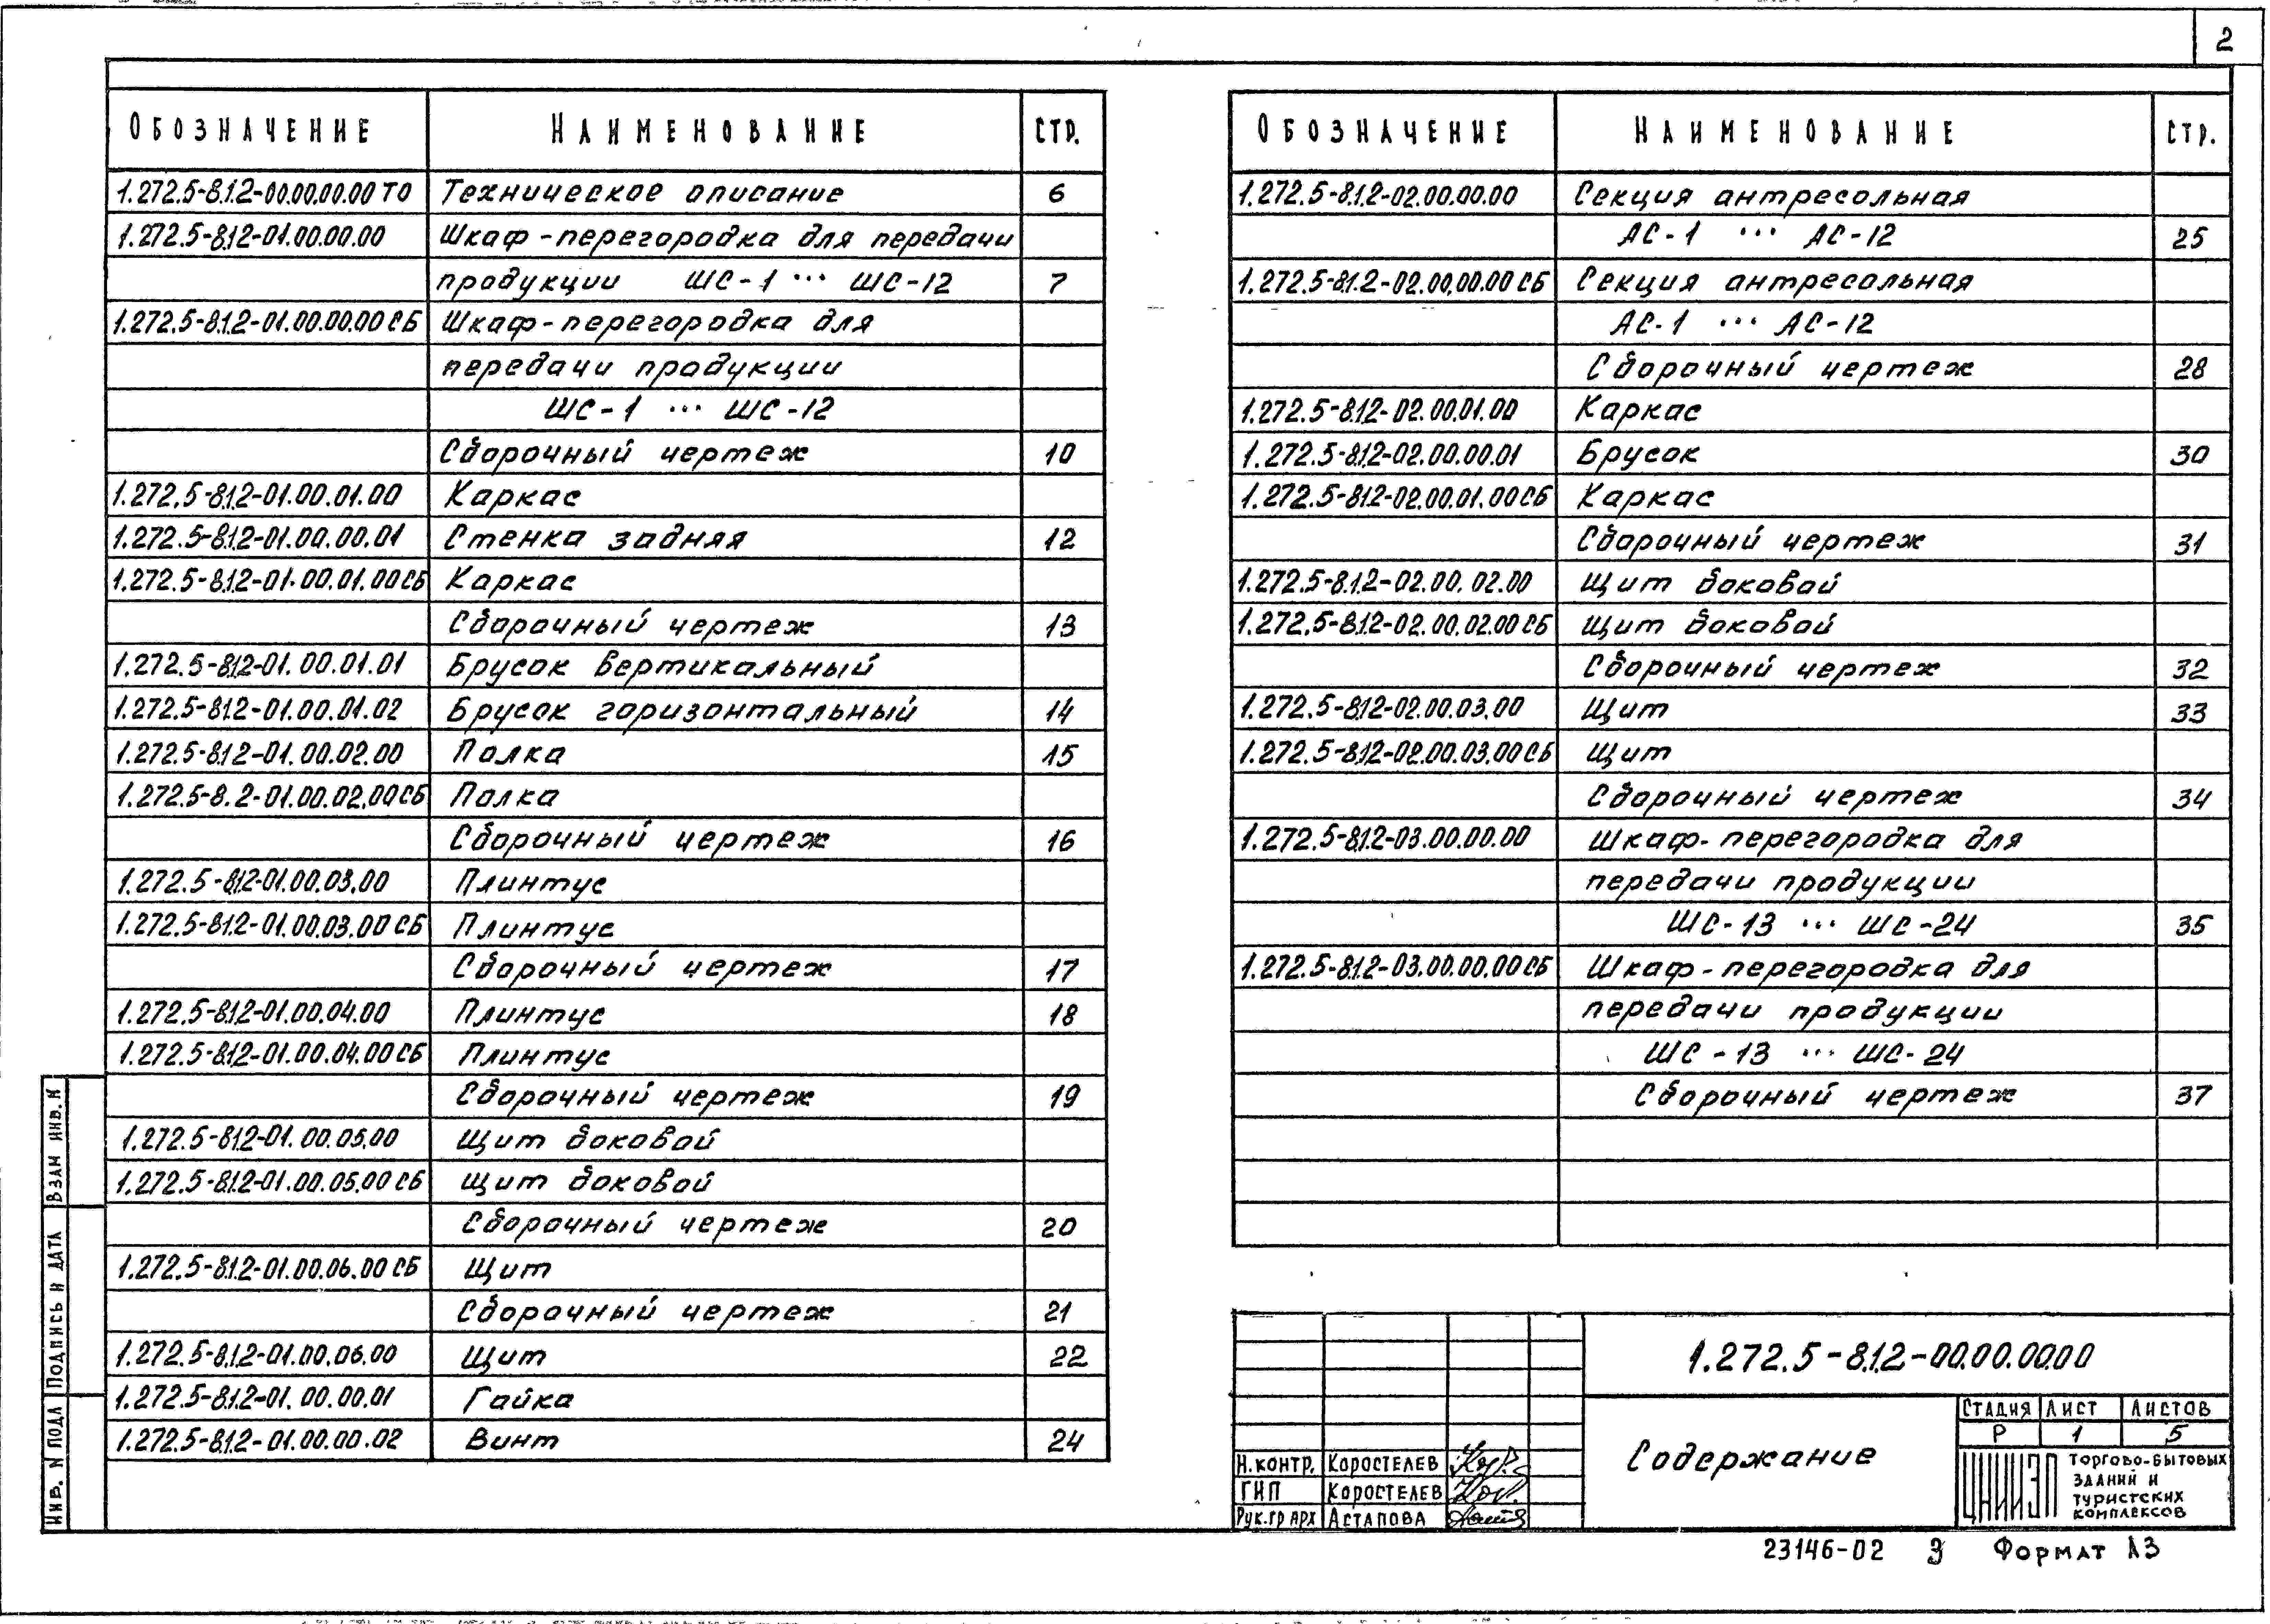 2
Обозначение Наименование стр.
1.272.5-8.1.2-00.00.00.00 ТО Техническое описание 6
1.272.5-8.1.2-01.00.00.00 Шкаф-перегородка для передачи
продукции ШС-1 ... ШС-12 7
1.272.5-8.1.2-01.00.00.00 СБ Шкаф-перегородка для
передачи продукции
ШС-1 ... ШС-12
Сборочный чертеж 10
1.272.5-8.1.2-01.00.01.00 Каркас
1.272.5-8.1.2-01.00.00.01 Стенка задняя 12
1.272.5-8.1.2-01.00.01.00 СБ Каркас
Сборочный чертеж 13
1.272.5-8.1.2-01.00.01.01 Брусок вертикальный
1.272.5-8.1.2-01.00.01.02 Брусок горизонтальный 14
1.272.5-8.1.2-01.00.02.00 Полка 15
1.272.5-8.2-01.00.02.00 СБ Полка
Сборочный чертеж 16
1.272.5-8.1.2-01.00.03.00 Плинтус
1.272.5-8.1.2-01.00.03.00 СБ Плинтус
Сборочный чертеж 17
1.272.5-8.1.2-01.00.04.00 Плинтус 18
1.272.5-8.1.2-01.00.04.00 СБ Плинтус
Сборочный чертеж 19
1.272.5-8.1.2-01.00.05.00 Щит боковой
1.272.5-8.1.2-01.00.05.00 СБ Щит боковой
Сборочный чертеж 20
1.272.5-8.1.2-01.00.06.00 СБ Щит
Сборочный чертеж 21
1.272.5-8.1.2-01.00.06.00 Щит 22
1.272.5-8.1.2-01.00.00.01 Гайка
1.272.5-8.1.2-01.00.00.02 Винт 24
Обозначение Наименование стр.
1.272.5-8.1.2-02.00.00.00 Секция антресольная
АС-1 ... АС-12 25
1.272.5-8.1.2-02.00.00.00 СБ Секция антресольная
АС-1 ... АС-12
Сборочный чертеж 28
1.272.5-8.1.2-02.00.01.00 Каркас
1.272.5-8.1.2-02.00.00.01 Брусок 30
1.272.5-8.1.2-02.00.01.00 СБ Каркас
Сборочный чертеж 31
1.272.5-8.1.2-02.00.02.00 Щит боковой
1.272.5-8.1.2-02.00.02.00 СБ Щит боковой
Сборочный чертеж 32
1.272.5-8.1.2-02.00.03.00 Щит 33
1.272.5-8.1.2-02.00.03.00 СБ Щит
Сборочный чертеж 34
1.272.5-8.1.2-03.00.00.00 Шкаф-перегородка для
передачи продукции
ШС-13 ... ШС-24 35
1.272.5-8.1.2-03.00.00.00 СБ Шкаф-перегородка для
передачи продукции
ШС-13 ... ШС-24
Сборочный чертеж 37
Взам инв. N
Подпись и дата
Инв. N подл
1.272.5-8.1.2-00.00.00.00
Содержание
Стадия Лист Листов
Р 1 5
Н.контр. Коростелев
ГИП Коростелев
Рук.гр арх Астапова
ЦНИИЭП
торгово-бытовых
зданий и
туристских
комплексов
23146-02 3 Формат А3